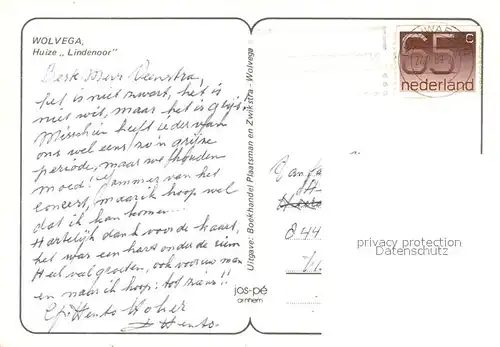 WOLVEGA,
Huize „Lindenoor"
Beste Mevr Veenstra,
het is niet zwart, het is
niet wit, maar het is grijs.
Misschien heeft ieder van
ons wel eens zo'n grijze
periode, maar wel houden
moed! Jammer van het
concert, maar ik hoop wel
dat ik kan komen...
Hartelijk dank voor de kaart,
het was een hart onder de riem
Heel veel groeten, ook voor uw man
en naar ik hoop: tot ziens!!
Hento
Hento.
Uitgave: Boekhandel Plaatsman en Zwikstra - Wolvega
jos-pé
arnhem
65 c
nederland
Van
844
privacy protection
Datenschutz